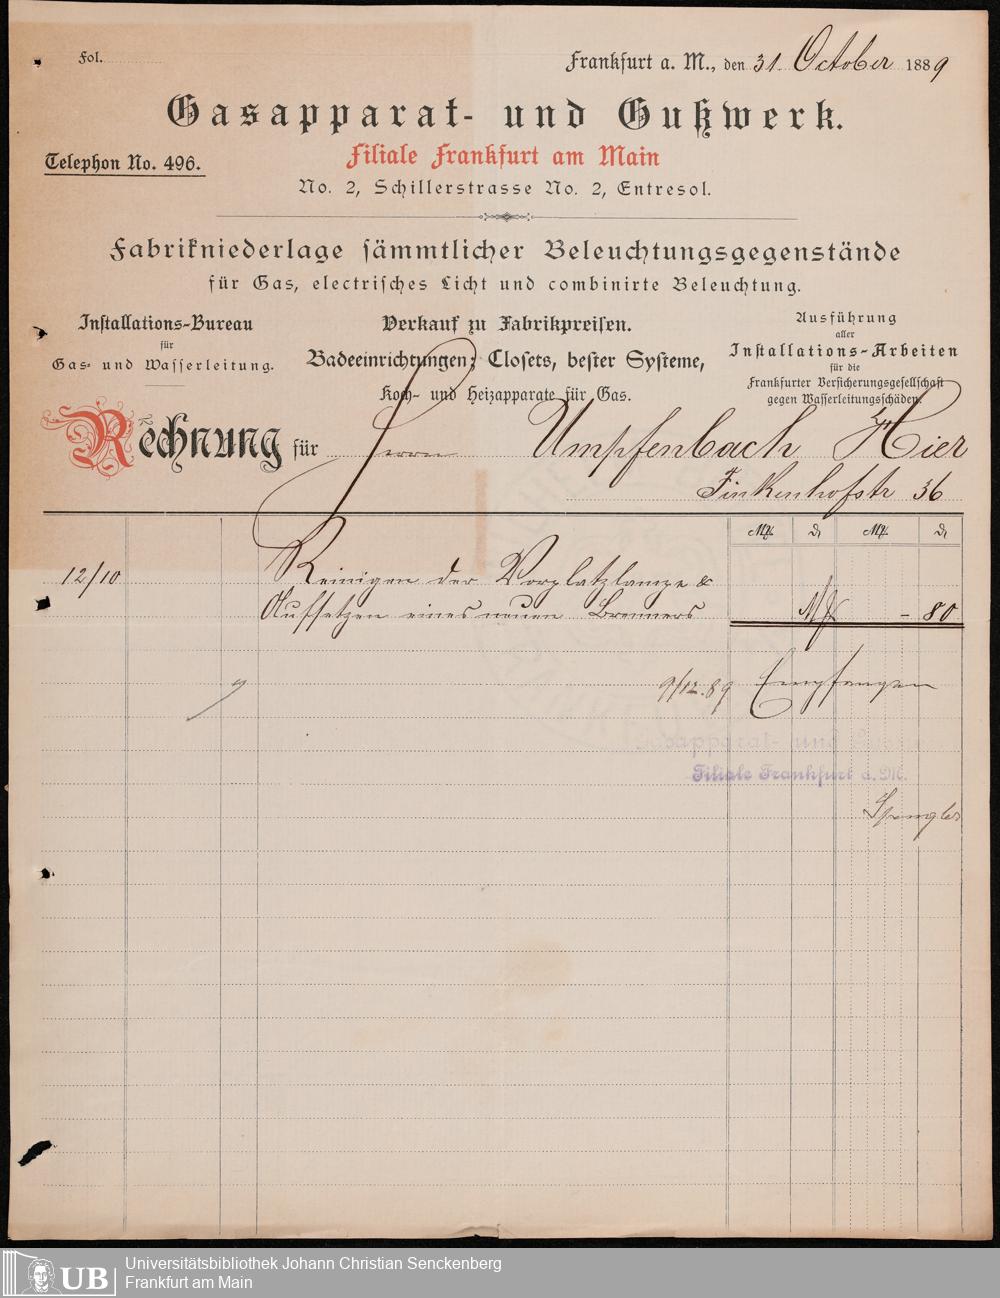 Fol.
Frankfurt a. M., den 31. October 1889
Gasapparat- und Gußwerk.
Telephon No. 496.
Filiale Frankfurt am Main
No. 2, Schillerstrasse No. 2, Entresol.
Fabrikniederlage sämmtlicher Beleuchtungsgegenstände
für Gas, electrisches Licht und combinirte Beleuchtung.
Installations-Bureau
für
Gas- und Wasserleitung.
Verkauf zu Fabrikpreisen.
Badeeinrichtungen, Closets, bester Systeme,
Koch- und Heizapparate für Gas.
Ausführung
aller
Installations-Arbeiten
für die
Frankfurter Versicherungsgesellschaft
gegen Wasserleitungsschäden.
Rechnung für Herrn Umpfenbach Hier
Finkenhofstr 36
12/10 Reinigen der Vorplatzlampe &
Aufsetzen eines neuen Brenners M - 80
9/12.89 Empfangen
Gasapparat- und
Filiale Frankfurt a. M.
Spengler
UB
Universitätsbibliothek Johann Christian Senckenberg
Frankfurt am Main